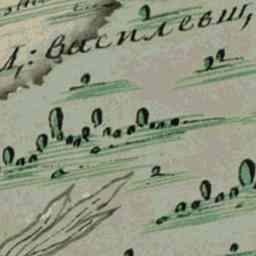 Д,: василевш,